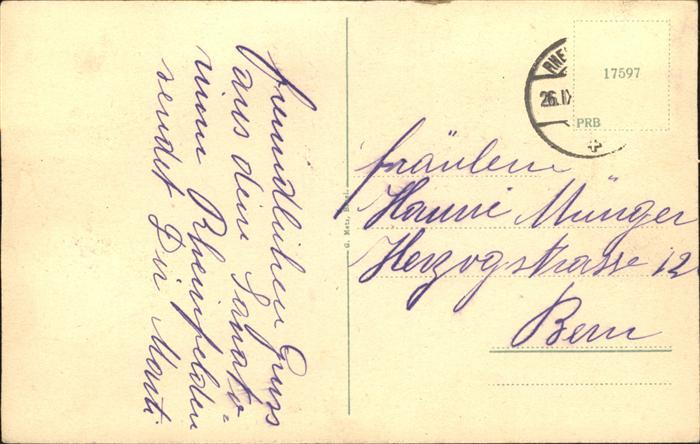 freundlichen Gruss
aus dem Sanato-
rium Rheinfelden
sendet Dir Marti
G. Metz, Basel.
RHE
26.IX
17597
PRB
Fräulein
Hanni Münger
Herzogstrasse 12
Bern